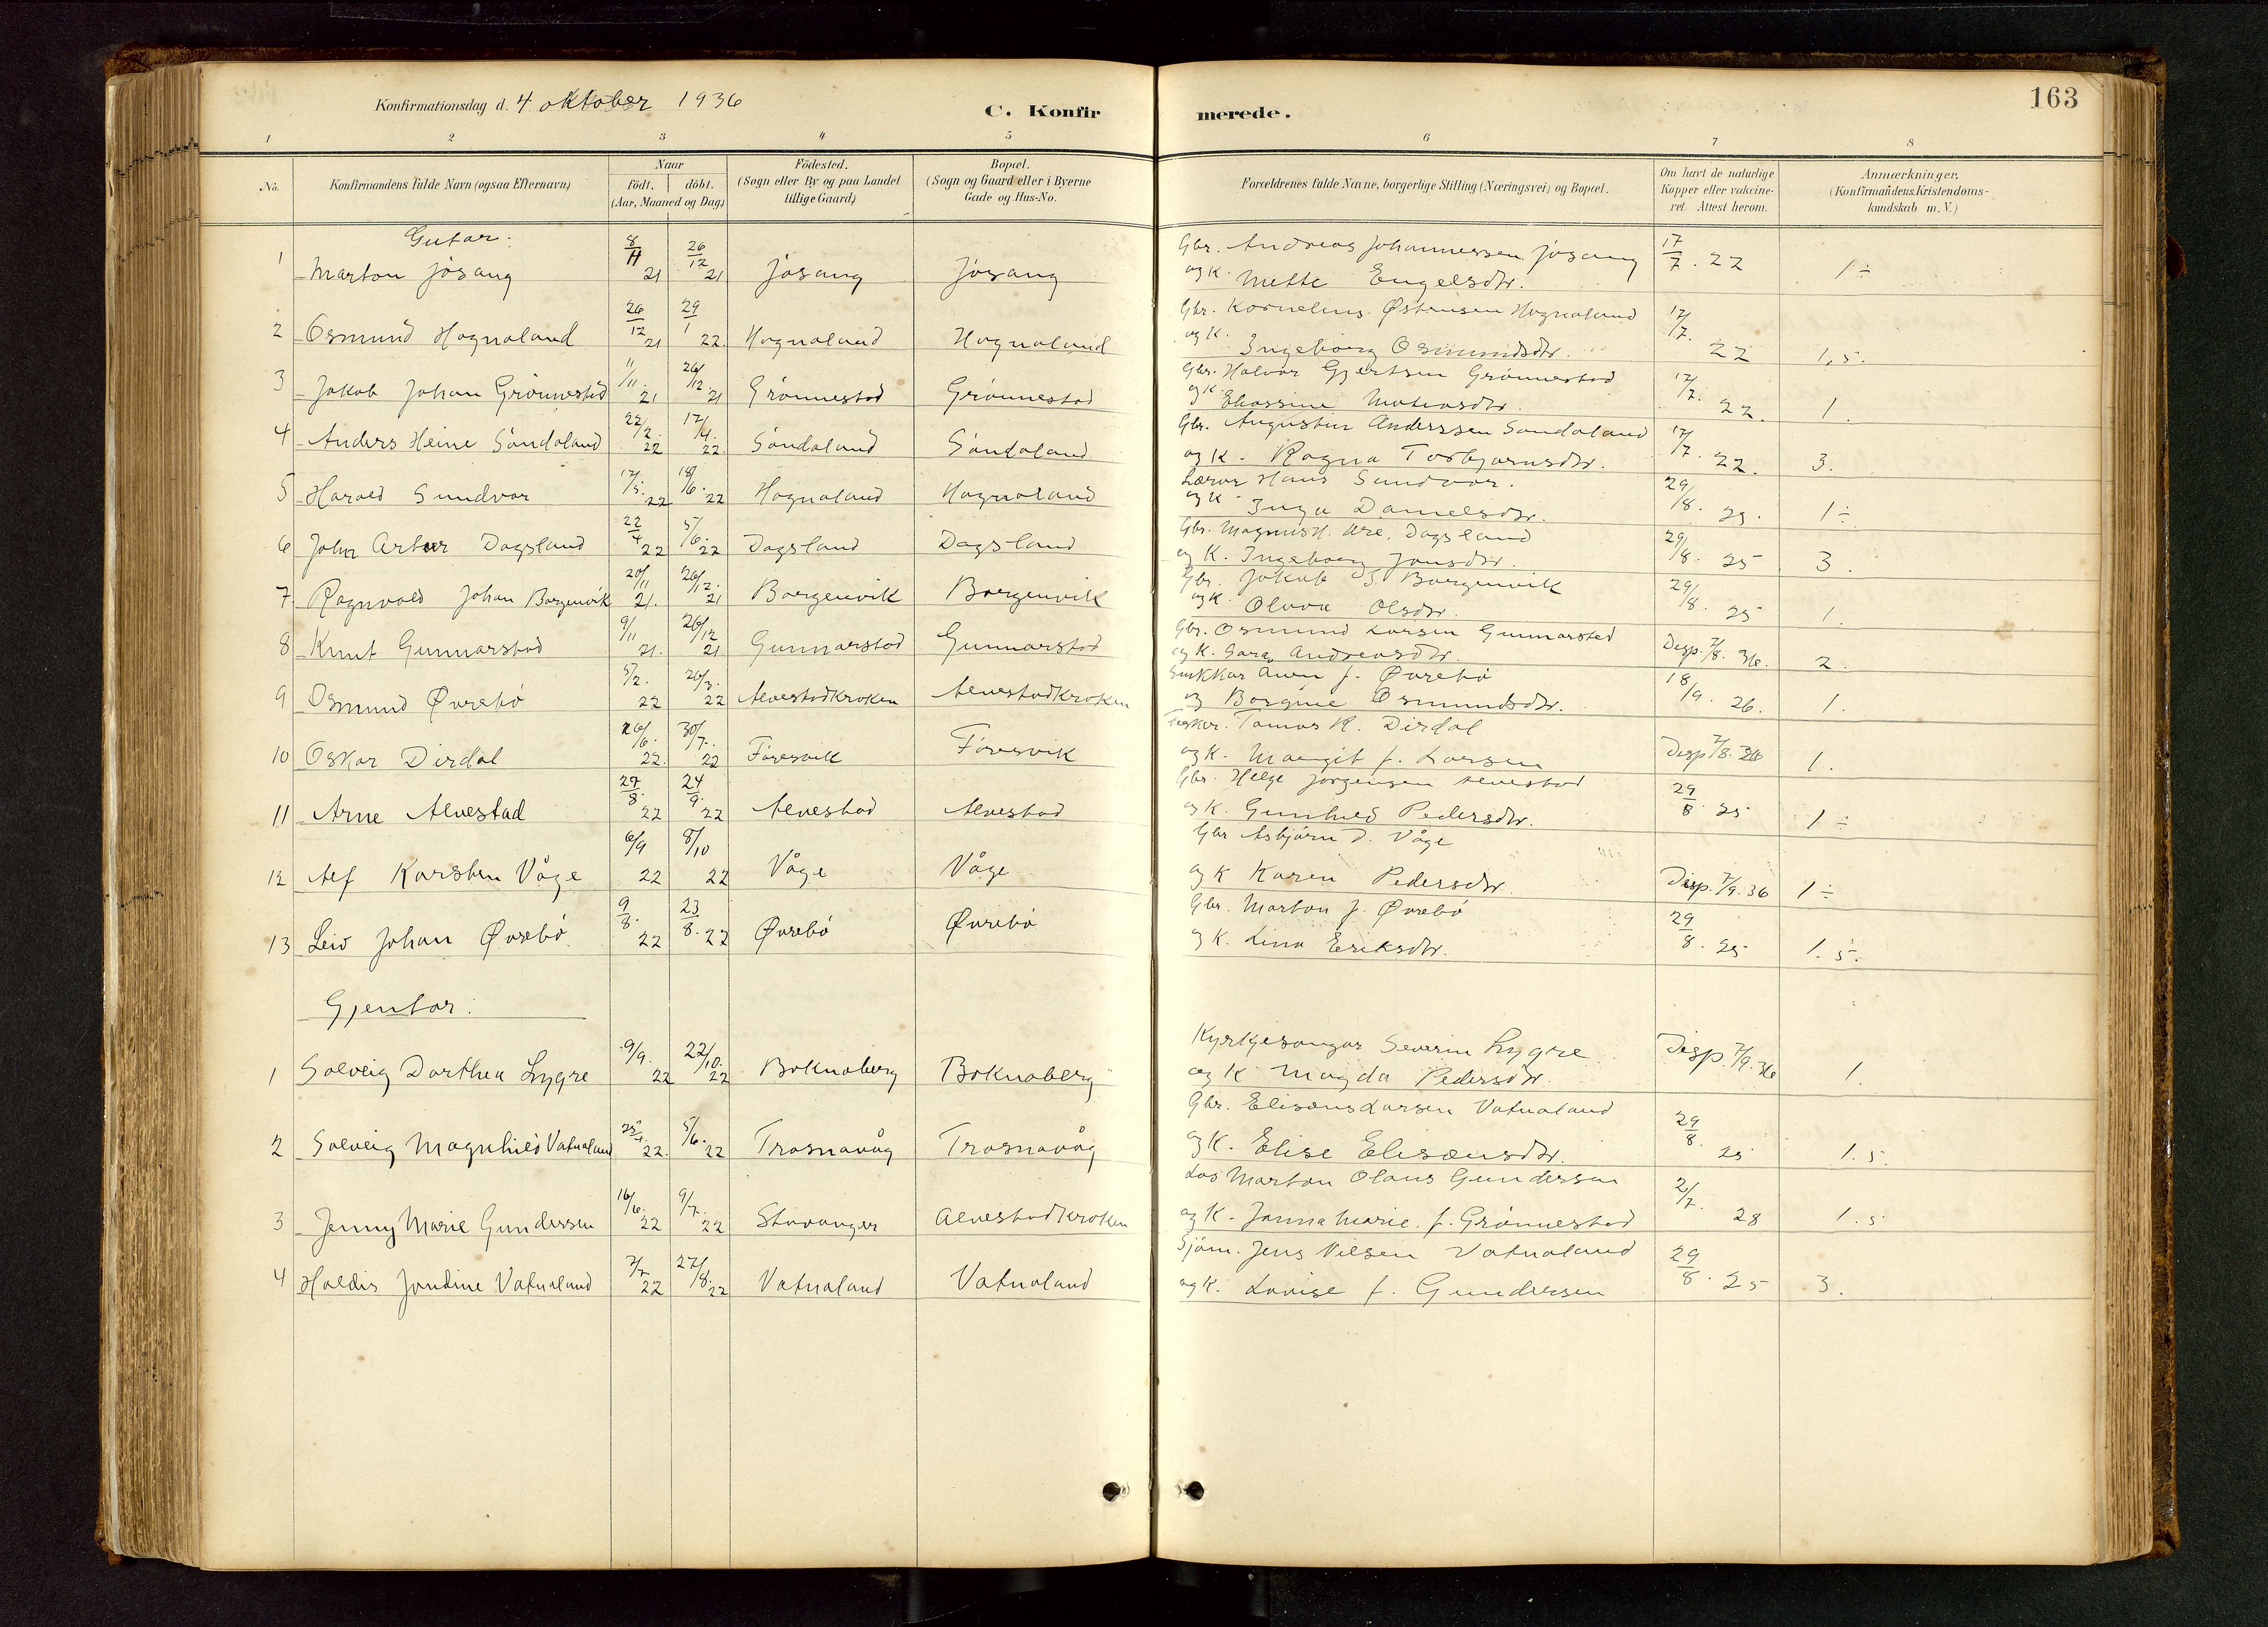 Konfirmationsdag d. 4 oktober 1936
C. Konfirmerede.
163
1 2 3 4 5 6 7 8
No.
Konfirmandens fulde Navn (ogsaa Efternavn)
Naar
födt. döbt.
(Aar, Maaned og Dag)
Födested.
(Sogn eller By og paa Landet
tillige Gaard)
Bopæl.
(Sogn og Gaard eller i Byerne
Gade og Hus-No.
Forældrenes fulde Navne, borgerlige Stilling (Næringsvei) og Bopæl.
Om havt de naturlige
Kopper eller vakcine-
ret. Attest herom.
Anmærkninger.
(Konfirmandens Kristendoms-
kundskab m. V.)
Gutar:
1 Marton Jøsang 8/11 21 26/12 21 Jøsang Jøsang Gbr. Andreas Johannessen Jøsang 17/7. 22 1÷
og K. Mette Engelsdtr.
2 Osmund Hognaland 26/12 21 29/1 22. Hognaland Hognaland Gbr. Kornelius Østensen Hognaland 17/7. 22 1,5.
og K. Ingeborg Osmundsdtr.
3 Jakob Johan Grønnestad 11/11. 21 26/12. 21 Grønnestad Grønnestad Gbr. Halvor Gjertsen Grønnestad 17/7. 22. 1.
og K. Eliassine
4 Anders Heine Sandaland 22/2. 22 17/4. 22. Sandaland Sandaland Gbr. Augustin Anderssen Sandaland 17/7. 22. 3.
og K. Ragna Torbjørnsdtr.
5 Harald Sundvor 17/5. 22 18/6. 22 Hognaland Hognaland Lærar Hans Sundvor. 29/8. 25. 1÷
og K. Inga Danielsdtr.
6 John Artur Dagsland 22/4 22 5/6. 22 Dagsland Dagsland Gbr. Magnus H. Are, Dagsland 29/8. 25 3.
og K. Ingeborg Jonsdtr.
7. Ragnvald Johan Borgenvik 20/11 21. 26/12. 21 Borgenvik Borgenvik Gbr. Jakob S. Borgenvik 29/8. 25 1.
og K. Olava Olsdtr.
8 Knut Gunnarstad 9/11 21. 26/12 21 Gunnarstad Gunnarstad Gbr. Osmund Larsen Gunnarstad Disp. 7/8. 36. 2.
og K. Sara Andreasdtr.
9 Osmund Øvrebø 5/2. 22 26/3. 22 Alvestadkroken Alvestadkroken f. Øvrebø 18/9. 26. 1.
og Borgine Osmundsdtr.
10 Oskar Dirdal 26/6. 22. 30/7. 22 Føresvik Føresvik Tomas K. Dirdal Disp 7/8. 36 1.
og K. Margit f. Larsen
11 Arne Alvestad 27/8. 22 24/9. 22 Alvestad Alvestad Gbr. Helge Jørgensen Alvestad 29/8. 25 1÷
og K. Gunhild Pedersdtr.
12 Alf Karsten Våge 6/9 22 8/10 22 Våge Våge Gbr Asbjørn D. Våge Disp. 7/9. 36 1÷
og K Karen Pedersdtr.
13 Leiv Johan Øvrebø. 9/8. 22 23/8. 22 Øvrebø Øvrebø Gbr. Marton J. Øvrebø 29/8. 25 1.5.
og K. Lina Eriksdtr.
Gjentar:
1 Solveig Dorthea Lygre 9/9. 22 22/10. 22 Boknaberg Boknaberg Kyrkjesongar Severin Lygre. Disp. 7/9. 36 1.
og K Magda Pedersdtr.
2 Solveig Magnhild Vatnaland 25/4. 22. 5/6. 22 Trosnavåg Trosnavåg Gbr. Elisæus Larsen Vatnaland 29/8. 25 1.5.
og K. Elise Elisæusdtr.
3 Jenny Marie Gundersen 16/6. 22 9/7. 22 Stavanger Alvestadkroken Los Marton Olaus Gundersen 2/7. 28 1.5
og K. Janna Marie f. Grønnestad
4 Haldis Jondine Vatnaland 7/7 22 27/8. 22 Vatnaland Vatnaland Sjøm. Jens Nilsen Vatnaland 29/8. 25 3.
og K. Lovise f. Gundersen